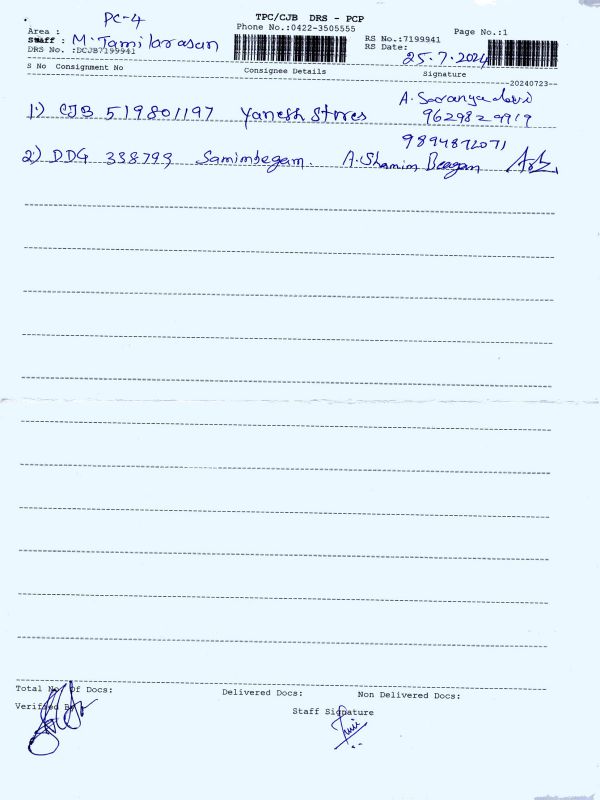 PC-4
TPC/CJB DRS - PCP
Phone No.:0422-3505555
Page No.:1
Area :
Staff : M. Tamilarasan
RS No.:7199941
DRS No. :DCJB7199941
RS Date: 25.7.2024
S No Consignment No Consignee Details Signature
--20240723--
1.) CJB 519801197 Yanesh Stores A. Saranya devi
9629829919
9894872071
2) DDG 338793 Samimbegam. A. Shamim Beagam
Total No. Of Docs: Delivered Docs: Non Delivered Docs:
Verified By
Staff Signature